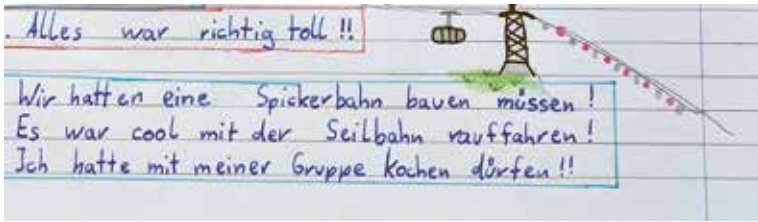 . Alles war richtig toll !!
Wir hatten eine Spickerbahn bauen müssen !
Es war cool mit der Seilbahn rauffahren !
Ich hatte mit meiner Gruppe Kochen dürfen !!